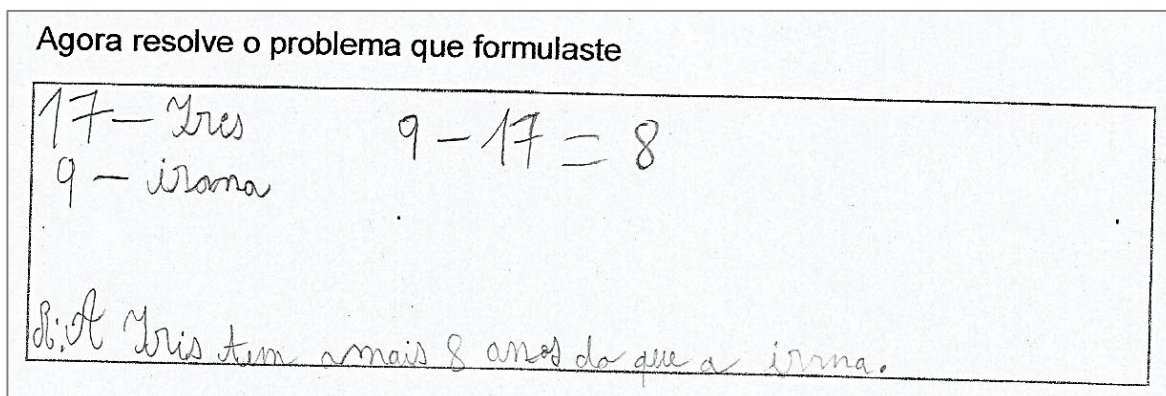 Agora resolve o problema que formulaste
17 – Ires
9 – irama
9 – 17 = 8
R: A Iris tem amais 8 anos do que a irma.